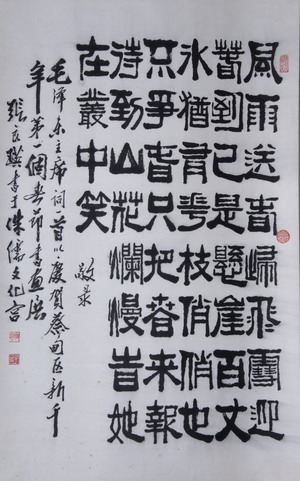 風雨送春歸飛雪迎
春到已是懸崖百丈
冰猶有花枝俏俏也
不爭春只把春來報
待到山花爛慢時她
在叢中笑
敬录
毛泽东主席词一首以慶賀蔡甸区新千
年第一個春節書画展
張良 書于侏儒文化宫